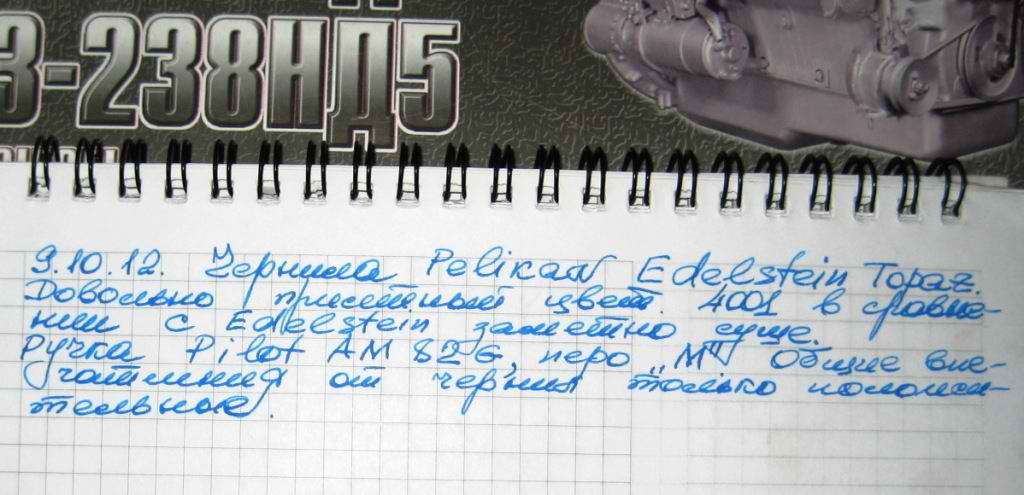 З-238НД5
9.10.12. Чернила Pelikan Edelstein Topaz.
Довольно приятный цвет. 4001 в сравне-
нии с Edelstein заметно суше.
Ручка Pilot AM 82G, перо „M" Общие впе-
чатления от чернил только положи-
тельные.